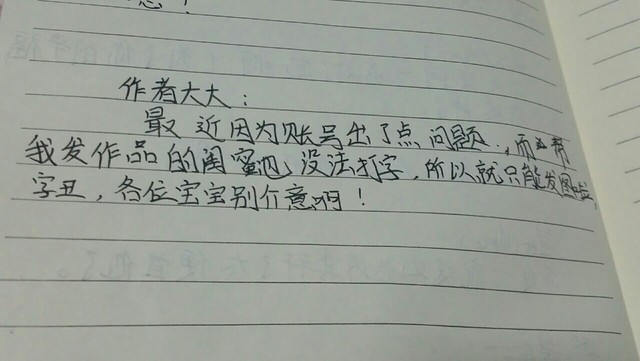 息！
作者大大：
最近因为账号出了点问题，而帮
我发作品的闺蜜也没法打字，所以就只能发图啦，
字丑，各位宝宝别介意啊！